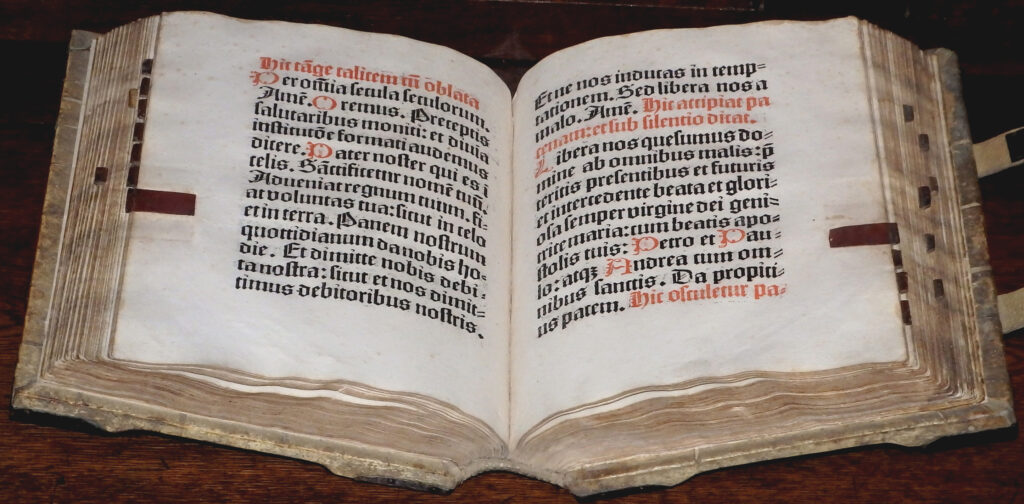 Hic tāge calicem cū oblata
Per oīa secula seculorum.
Amē. Oremus. Preceptis
salutaribus moniti: et diuīa
institutōe formati audemus
dicere. Pater noster qui es ī
celis. Sāctificetur nomē tuū.
Adueniat regnum tuum. fi-
at voluntas tua: sicut in celo
et in terra. Panem nostrum
quottidianum da nobis ho-
die. Et dimitte nobis debi-
ta nostra: sicut et nos dimit-
timus debitoribus nostris.
Et ne nos inducas in temp-
tationem. Sed libera nos a
malo. Amē. Hic accipiat pa
tenam: et sub silentio dicat.
Libera nos quesumus do-
mine ab omnibus malis: p̄
teritis presentibus et futuris
et intercedente beata et glori-
osa semper virgine dei geni-
trice maria: cum beatis apo-
stolis tuis: Petro et Pau-
lo: atqꝫ Andrea cum om-
nibus sanctis. Da propici-
us pacem. Hic osculetur pa-